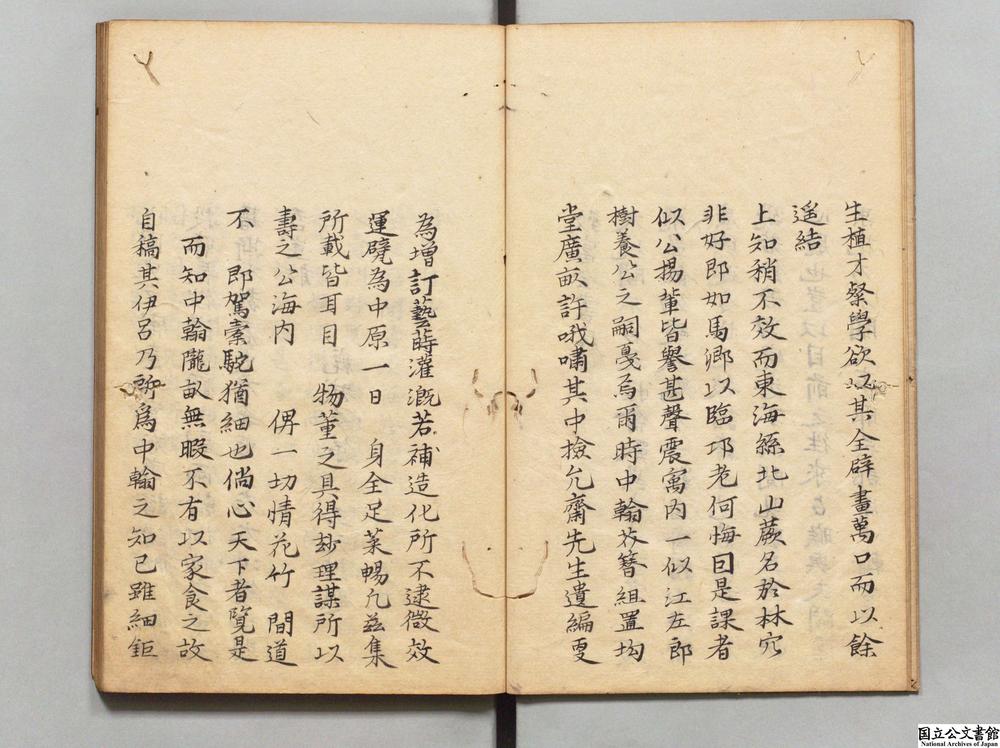 生植才粲學欲以其全辟畫萬口而以餘
遥結
上知稍不效而東海緜北山蕨名於林穴
非好即如馬卿以臨邛老何悔曰是課者
似公揚輩皆譽甚聲震寓内一似江左郎
樹養公之嗣戞爲爾時中翰芥簪組置均
堂廣畝許哦嘯其中撿允齋先生遺編更
為增訂藝蒔灌漑若補造化所不逮微效
運甓為中原一日 身全足菜暢凢玆集
所載皆耳目 物董之具得玅理謀所以
壽之公海内 俾一切情花竹 間道
不 即駕橐駝猶細也倘心天下者覽是
而知中翰隴畝無暇不有以家食之故
自稿其伊呂乃所爲中翰之知已雖細鉅
国立公文書館
National Archives of Japan